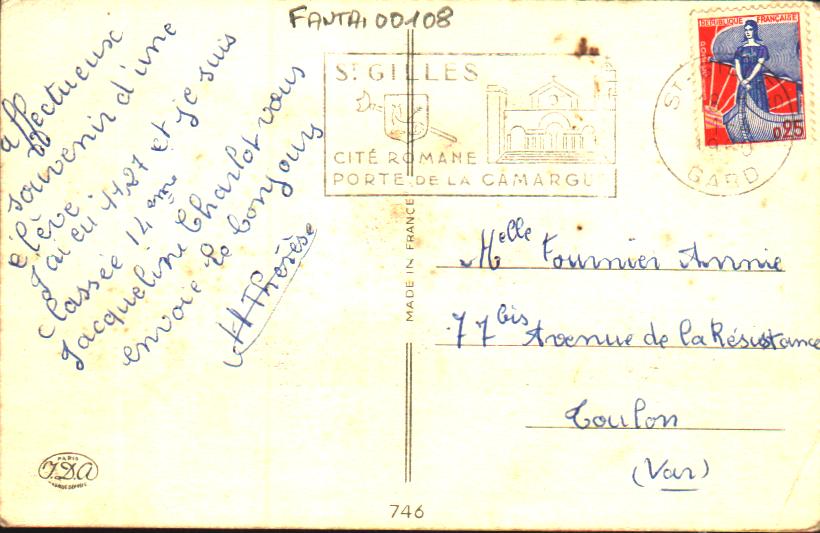 FANTAI 00108
affectueux
souvenir d'une
élève.
J'ai eu 1727 et je suis
Classée 14 eme
Jacqueline Charlot vous
envoie le bonjour
M Thérèse
ST GILLES
CITÉ ROMANE
PORTE DE LA CAMARGU
REPUBLIQUE FRANÇAISE
POSTES
0,25
ST
GARD
MADE IN FRANCE
Melle Fournier Annie
77 bis Avenue de la Résistance
Toulon
(Var)
PARIS
J.D.A
746